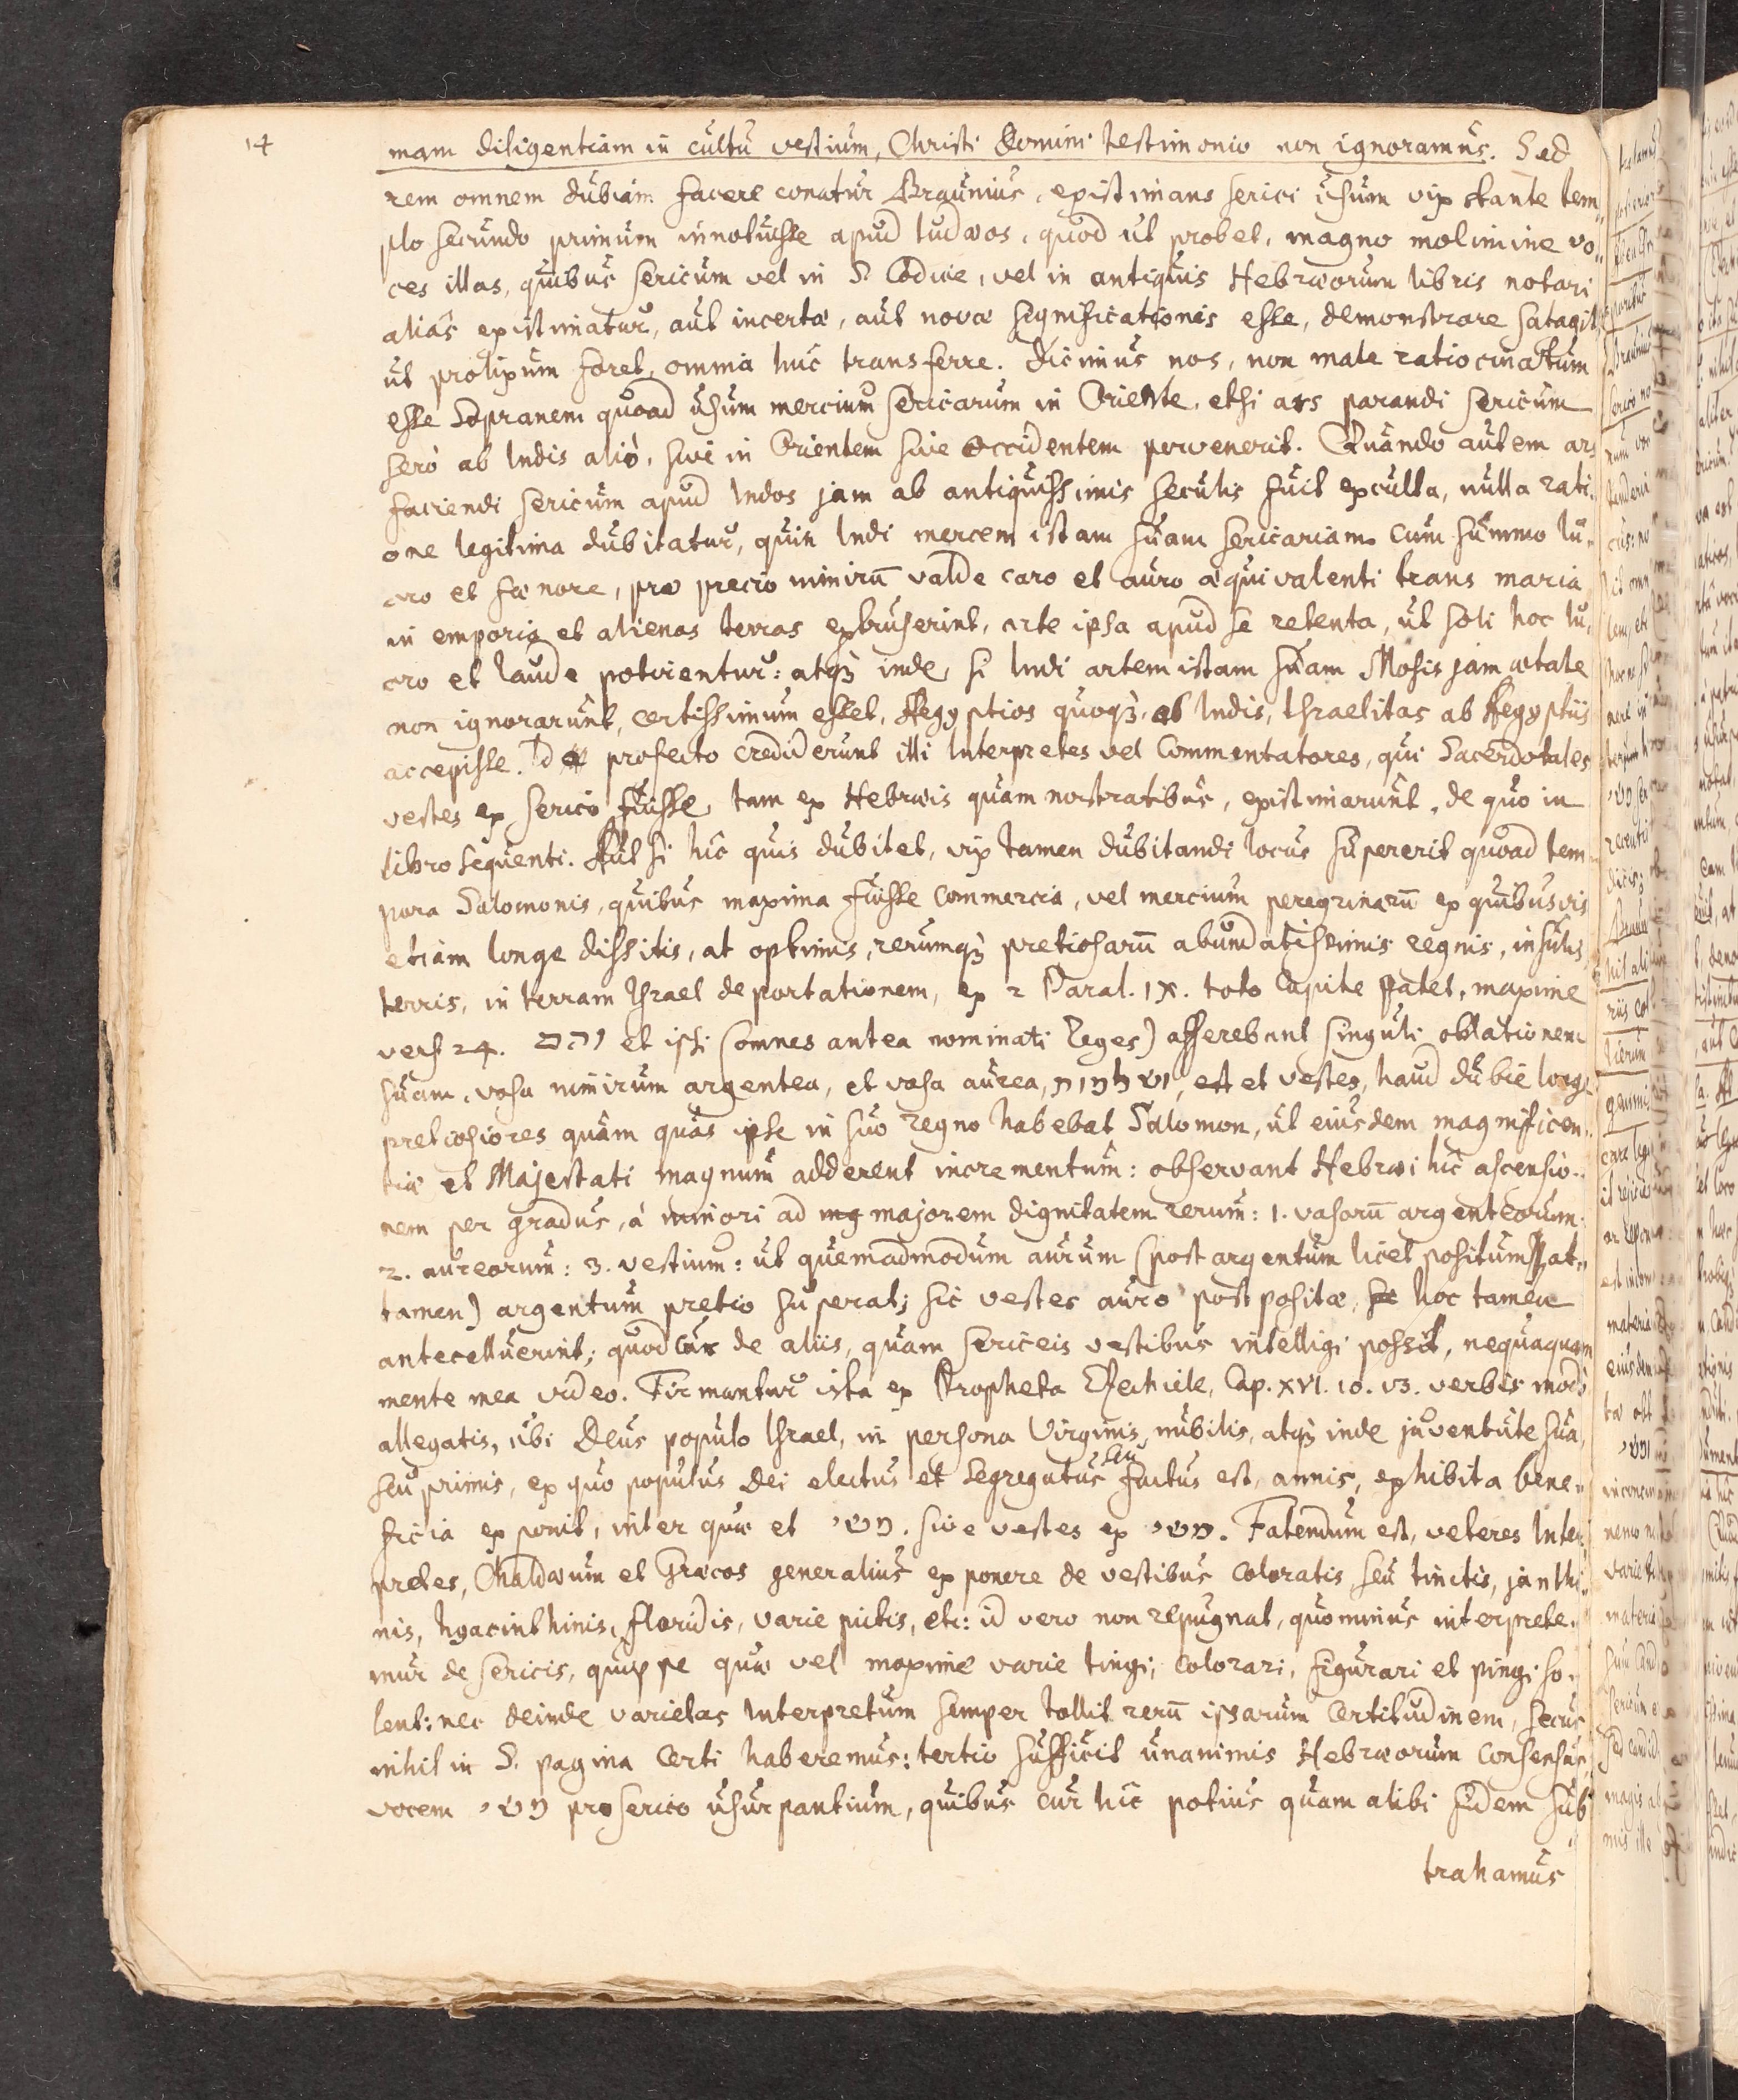 14
mam diligentiam in cultu vestium, Christi Domini testimonio non ignoramus. Sed
rem omnem dubiam facere conatur Braunius, existimans serici usum vix stante tem-
plo secundo primum innotuisse apud Iudæos, quod ut probet, magno molimine vo-
ces illas, quibus sericum vel in S. Codice, vel in antiquis Hebræorum libris notari
alias existimatur, aut incertæ, aut novæ significationis esse, demonstrare satagit,
ut prolixum foret, omnia huc transferre. Dicimus nos, non male ratiocinatum
esse Sopranem quoad usum mercium sericarum in Oriente, etsi ars parandi sericum
serò ab Indis aliò, sive in Orientem sive Occidentem pervenerit. Quando autem ars
faciendi sericum apud Indos jam ab antiquissimis seculis fuit exculta, nulla rati-
one legitima dubitatur, quin Indi mercem istam suam sericariam cum summo lu-
cro et fœnore, pro precio nimirū valde caro et auro æquivalenti trans maria
in emporia et alienas terras extruserint, arte ipsa apud se retenta, ut soli hoc lu-
cro et laude potirentur: atq; inde, si Indi artem istam suam Mosis jam ætate
non ignorarunt, certissimum esset, Aegyptios quoq; ab Indis, Israelitas ab Aegyptiis
accepisse. profecto crediderunt illi Interpretes vel Commentatores, qui Sacerdotales
vestes ex serico fuisse, tam ex Hebræis quam nostratibus, existimarunt, de quo in
libro sequenti. Aut si hic quis dubitet, vix tamen dubitandi locus supererit quoad tem
pora Salomonis, quibus maxima fuisse commercia, vel mercium peregrinarū ex quibusvis
etiam longe dissitis, at optimis, rerumq; pretiosarū abundatissimis regnis, insulis,
terris, in terram Israel deportationem, ex 2 Paral. IX. toto Capite patet, maxime
vers 24. והם et ipsi (omnes antea nominati Reges) afferebant singuli oblationem
suam, vasa nimirum argentea, et vasa aurea, ושלמות, et vestes, haud dubie longe
pretiosiores quam quas ipse in suo regno habebat Salomon, ut eiusdem magnificen-
tiæ et Majestati magnum adderent incrementum: observant Hebræi hic ascensio-
nem per gradus, à minori ad majorem dignitatem rerum: 1. vasorū argenteorum:
2. aureorum: 3. vestium: ut quemadmodum aurum (post argentum licet positum at-
tamen) argentum pretio superat; sic vestes auro postpositæ, hoc tamen
antecelluerint; quod cur de aliis, quam sericeis vestibus intelligi possit, nequaquam
mente mea video. Firmantur ista ex Propheta Ezechiele, Cap. XVI. 10. 13. verbis modò
allegatis, ubi Deus populo Israel, in persona Virginis nubilis, atq; inde juventute sua,
seu
seu primis, ex quo populus Dei electus et segregatus factus est, annis, exhibita bene-
ficia exponit, inter quæ et משי. sive vestes ex משי. Fatendum est, veteres Inter-
pretes, Chaldæum et Græcos generalius exponere de vestibus coloratis seu tinctis, janthi-
nis, hyacinthinis, floridis, varie pictis, etc: id vero non repugnat, quominus interprete-
mur de sericis, quippe quæ vel maxime varie tingi, colorari, figurari et pingi so-
lent: nec deinde varietas Interpretum semper tollit rerū ipsarum certitudinem, secus
nihil in S. pagina certi haberemus: tertio sufficit unanimis Hebræorum consensus,
vocem משי pro serico usurpantium, quibus cur hic potius quam alibi fidem sub
trahamus